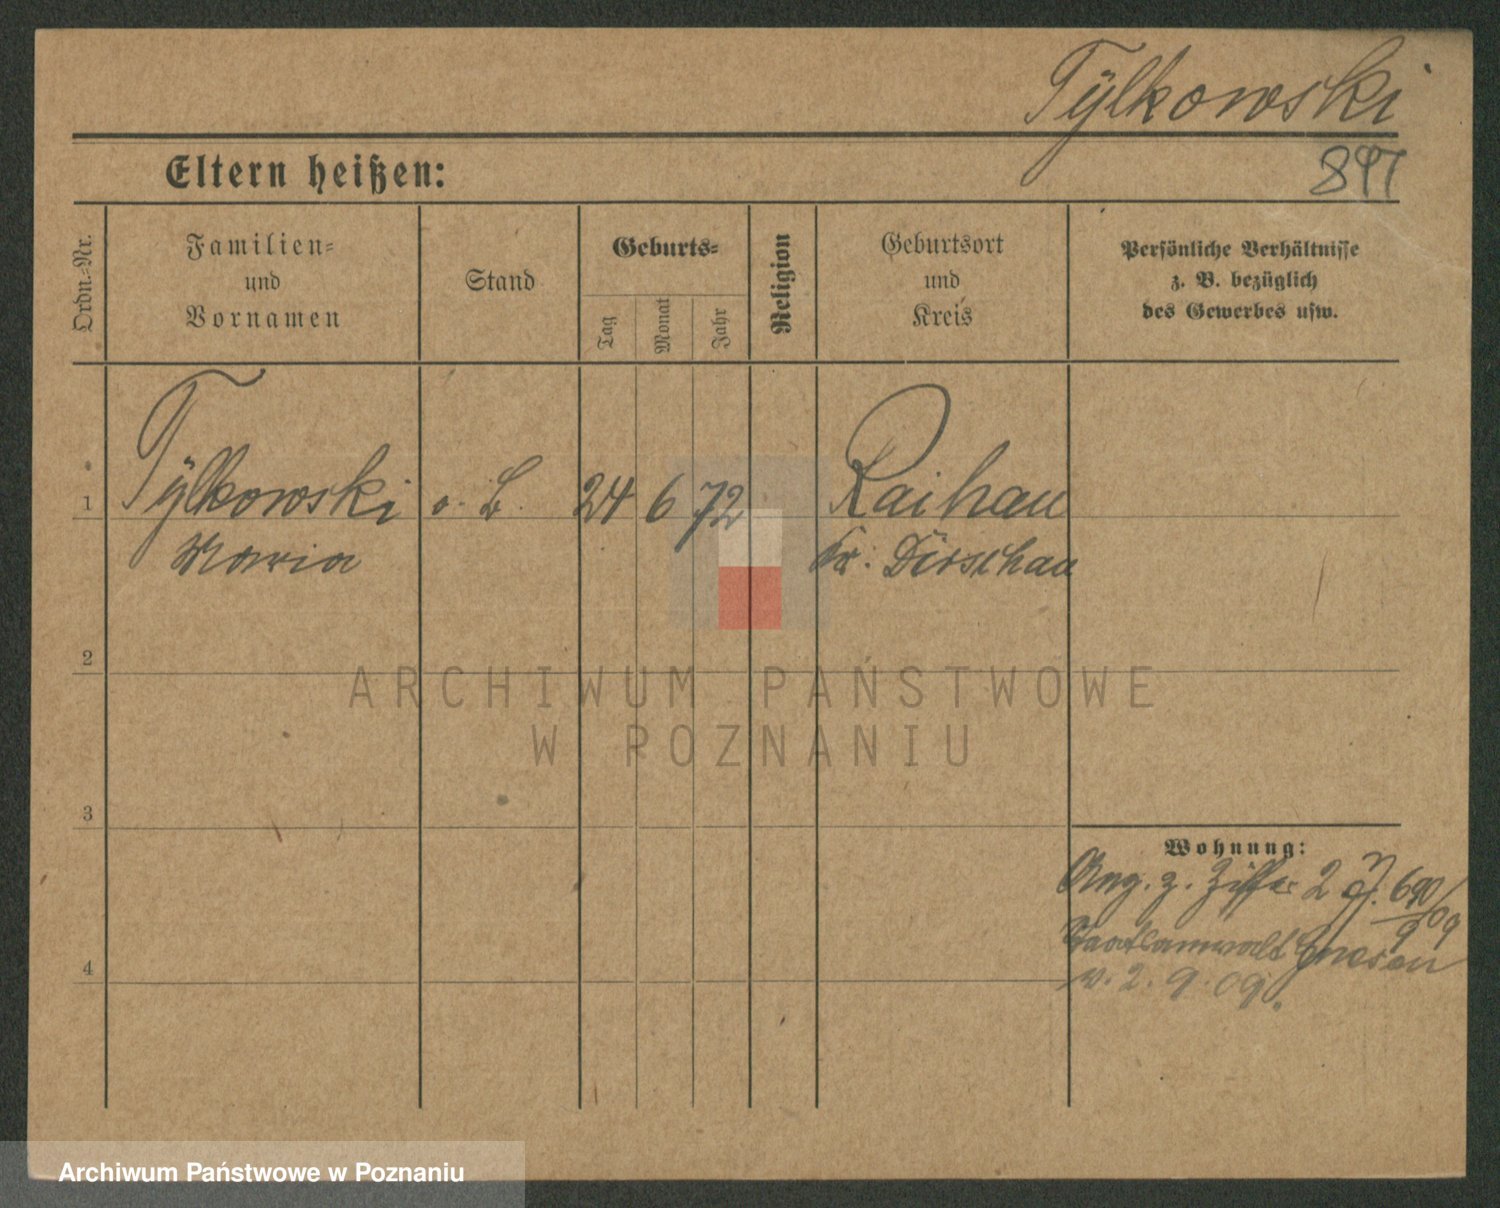 Tÿlkowski
897
Eltern heißen:
Ordn.-Nr.
Familien-
und
Vornamen
Stand
Geburts-
Tag
Monat
Jahr
Religion
Geburtsort
und
Kreis
Persönliche Verhältnisse
z. B. bezüglich
des Gewerbes usw.
1
Tÿlkowski
Maria
o. B.
24
6
72
Raikau
Kr. Dirschau
2
3
4
Wohnung:
Ang. z. Ziffer 2 J. 690/09
Staatsanwalt Gnesen
v. 2. 9. 09.
ARCHIWUM PAŃSTWOWE
W POZNANIU
Archiwum Państwowe w Poznaniu